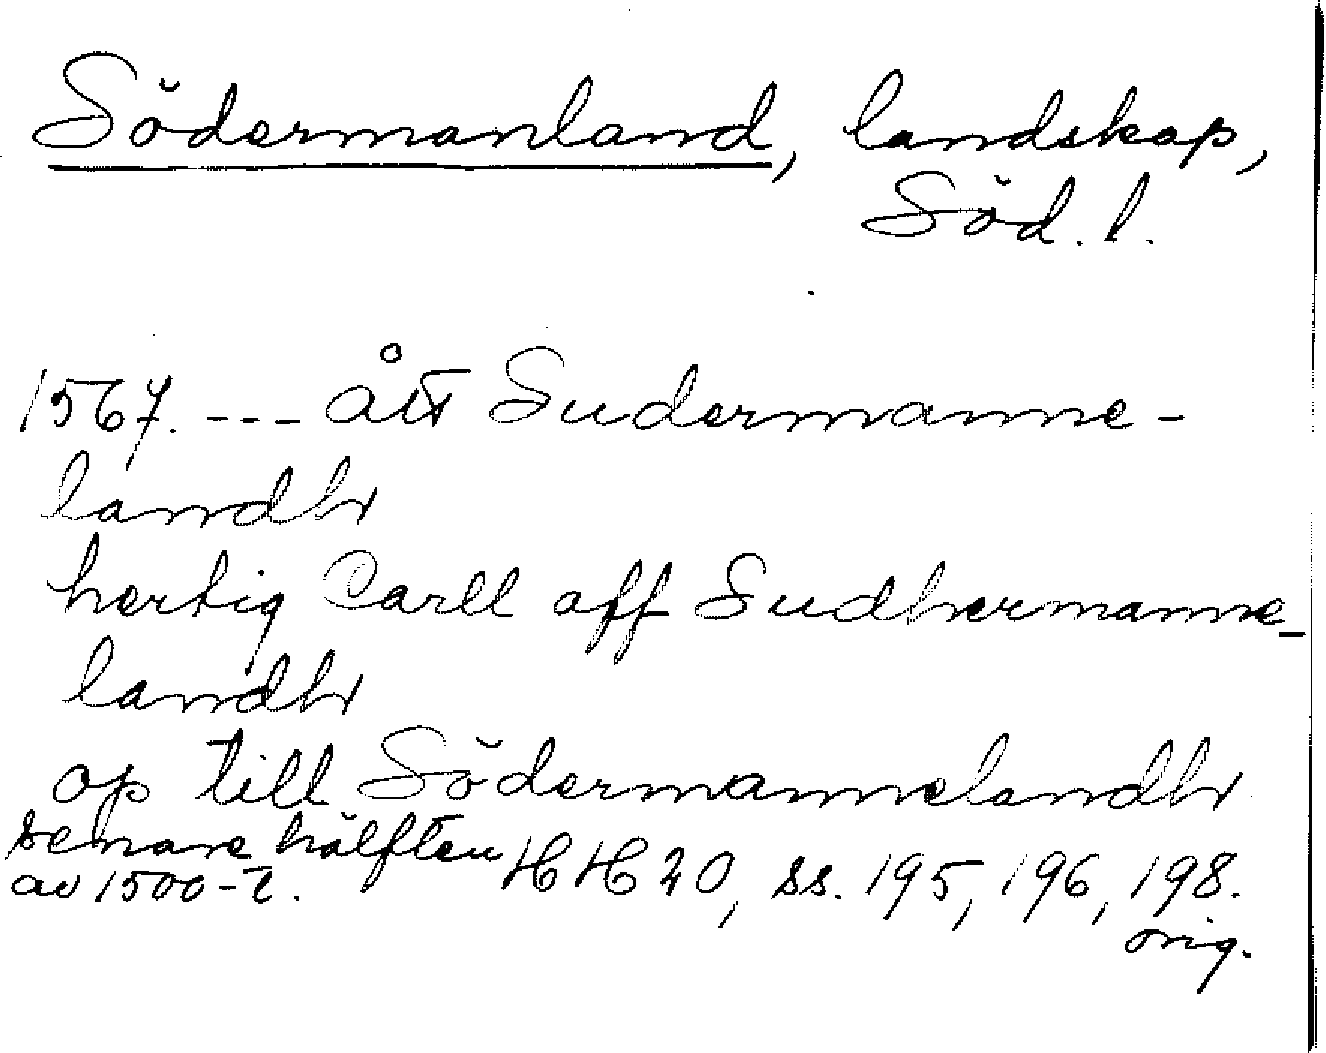 Södermanland, landskap,
Söd. l.
1567. --- ått Sudermanne-
landh
hertig Carll aff Sudhermanne-
landh
op till Södermannelandh
senare hälften HH 20, ss. 195, 196, 198.
av 1500-t.
orig.